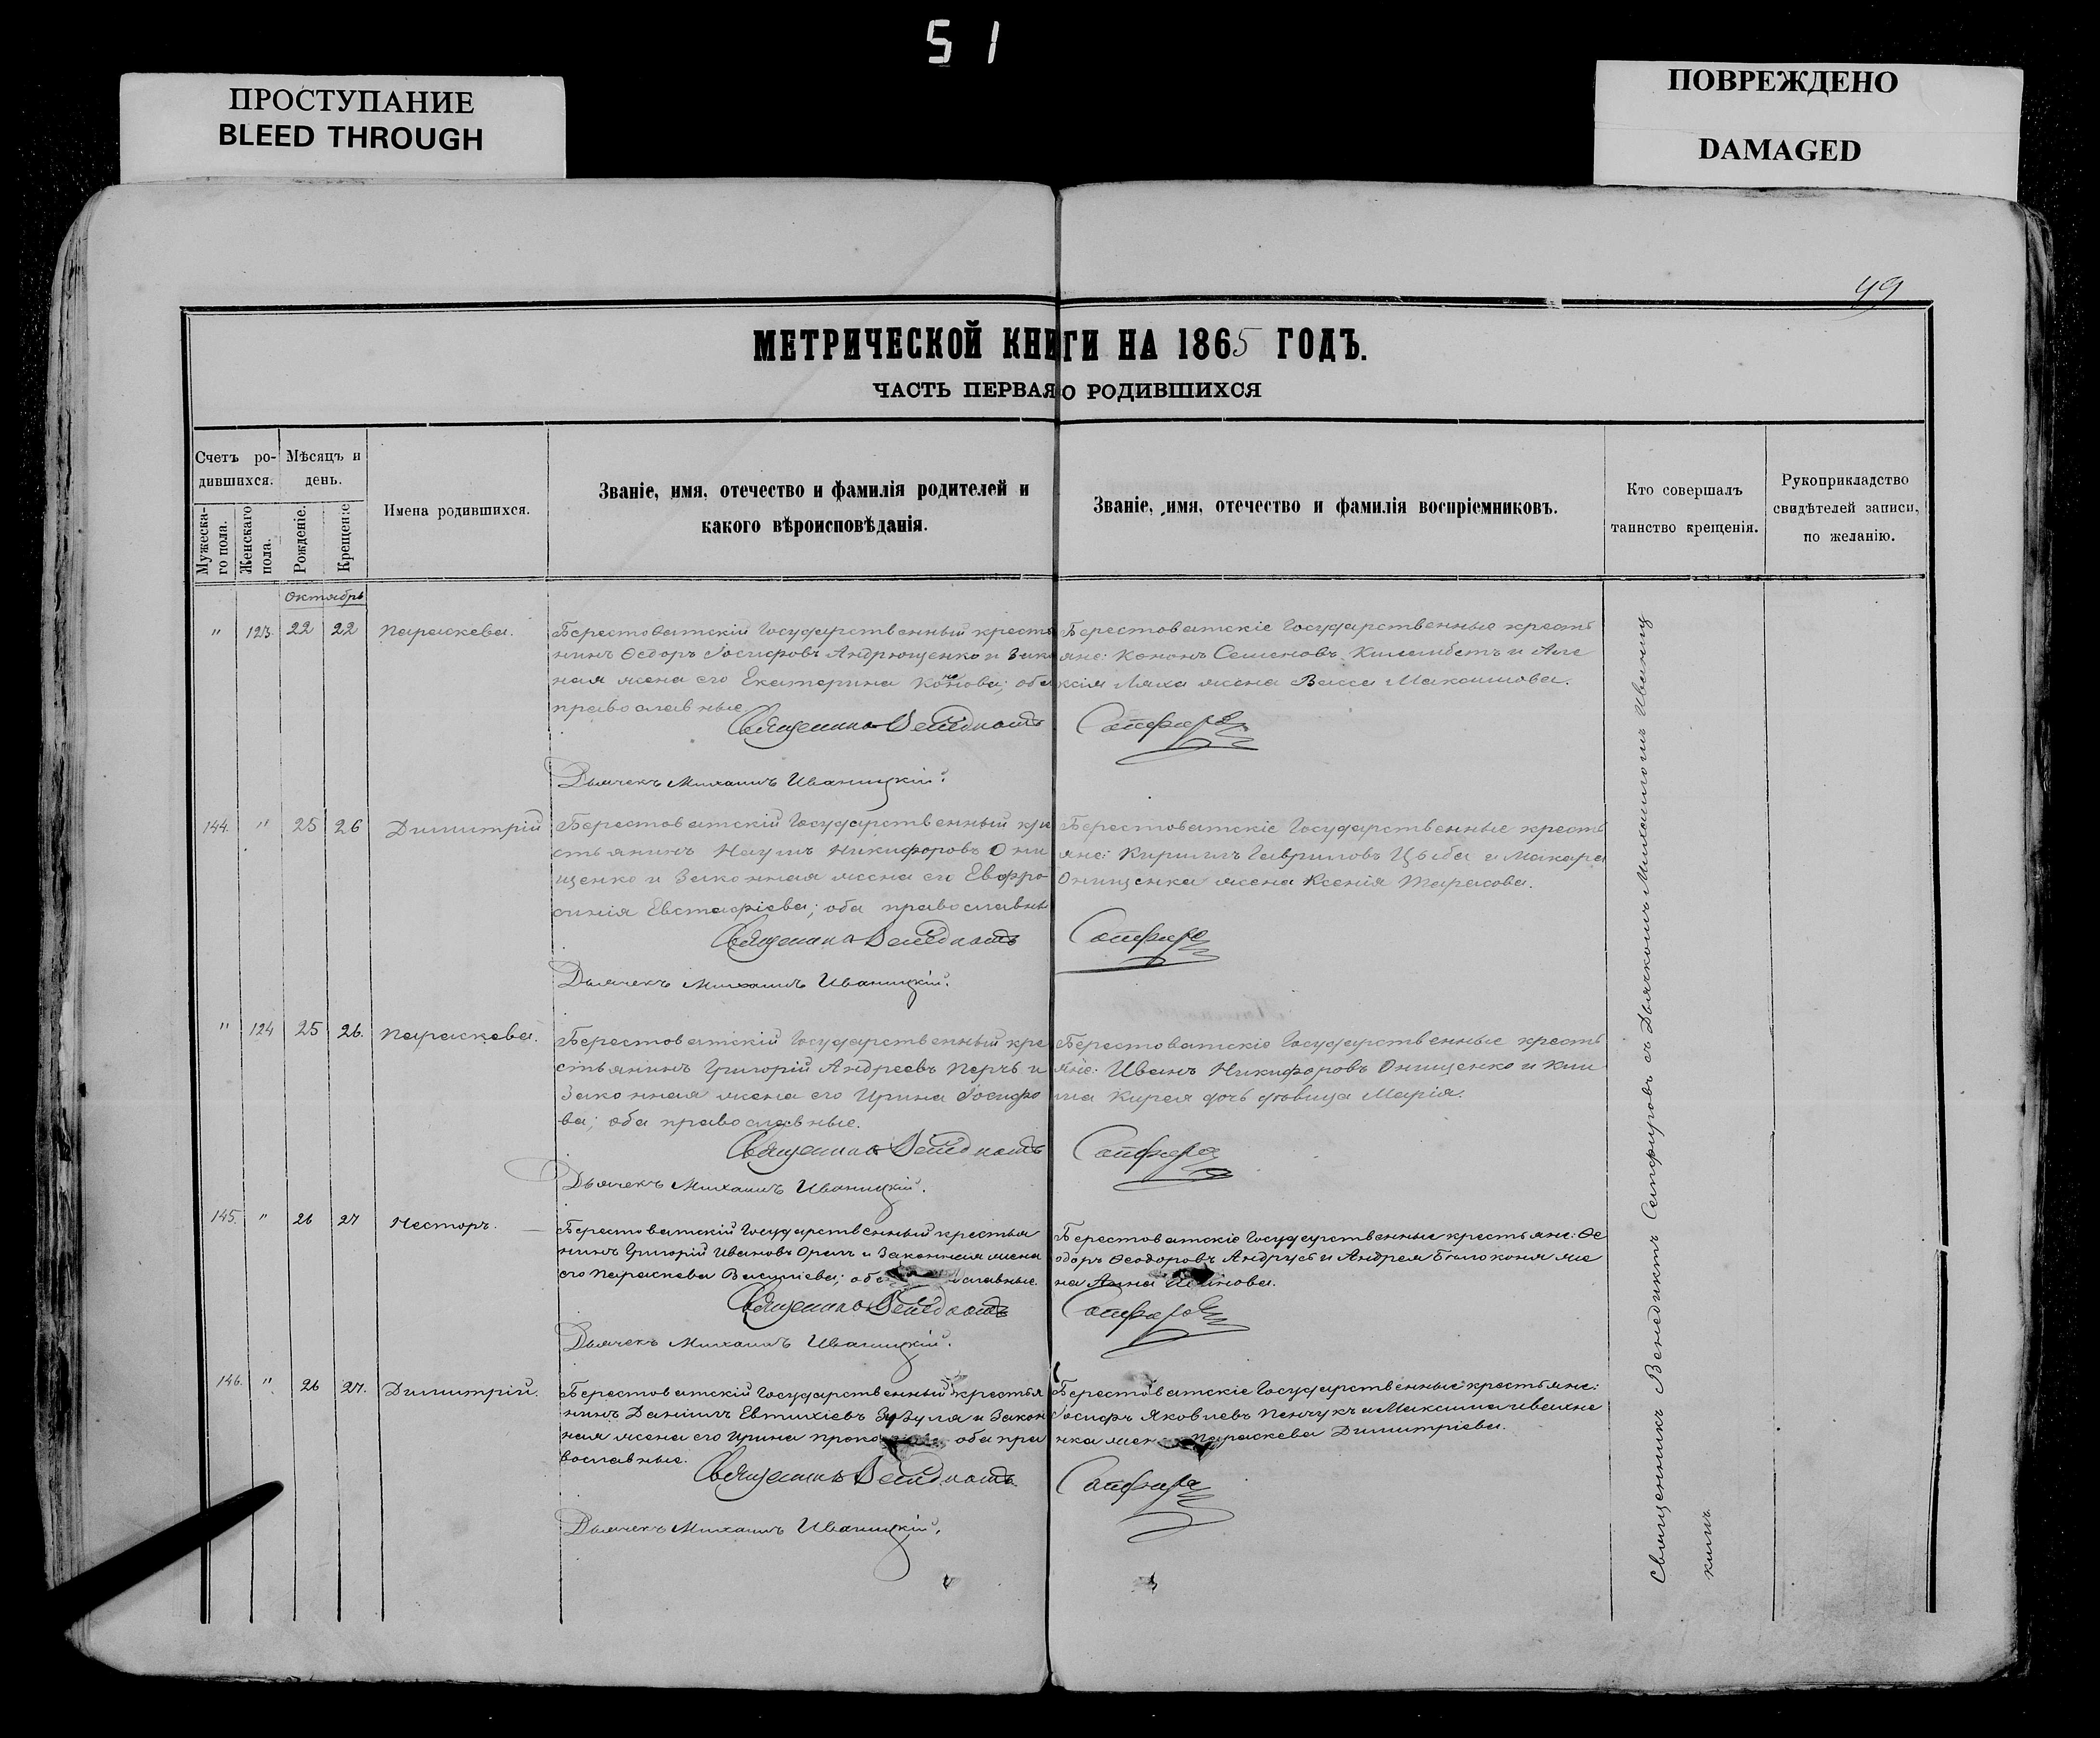 51
ПРОСТУПАНИЕ
BLEED THROUGH
ПОВРЕЖДЕНО
DAMAGED
49
МЕТРИЧЕСКОЙ КНИГИ НА 1865 ГОДЪ.
ЧАСТЬ ПЕРВАЯ О РОДИВШИХСЯ
Счетъ ро-
дившихся.
Мужеска-
го пола.
Женскаго
пола.
Мѣсяцъ и
день.
Рожденіе.
Крещеніе
Имена родившихся.
Званіе, имя, отечество и фамилія родителей и
какого вѣроисповѣданія.
Званіе, имя, отечество и фамилія воспріемниковъ.
Кто совершалъ
таинство крещенія.
Рукоприкладство
свидѣтелей записи,
по желанію.
Октябрь
" 123. 22 22 Параскева.
Берестоватскій Государственный крестья
нинъ Ѳедоръ Іосифовъ Андрющенко и Зако
ная жена его Екатерина Конова; оба
православные
Священникъ Венедиктъ
Дьячекъ Михаилъ Иваницкій.
Берестоватскіе Государственные кресть
яне: Кононъ Семеновъ и Але
ксія Ляха жена Васса Максимова.
Сапфиров
144. " 25 26 Димитрій
Берестоватскій Государственный кре
стьянинъ Наумъ Никифоровъ Они
щенко и Законная жена его Евфро-
синія Евстафіева; оба православны
Священникъ Венедиктъ
Дьячекъ Михаилъ Иваницкій.
Берестоватскіе Государственные кресть
яне: Кирилъ Гавриловъ Цыба и Макара
Онищенка жена Ксенія Тарасова.
Сапфиров
" 124 25 26. Параскева.
Берестоватскій Государственный кре
стьянинъ Григорій Андреевъ Перчъ и
Законная жена его Ирина Іосифо
ва; оба православные.
Священникъ Венедиктъ
Дьячекъ Михаилъ Иваницкій.
Берестоватскіе Государственные кресть
яне: Иванъ Никифоровъ Онищенко и Кли
ма Кирея дочь дѣвица Марія.
Сапфиров
145. " 26 27 Несторъ.
Берестоватскій Государственный крестья
нинъ Григорій Ивановъ Орелъ и Законная жена
его Параскева Василіева; оба славные.
Священникъ Венедиктъ
Дьячекъ Михаилъ Иваницкій.
Берестоватскіе Государственные крестьяне: Ѳе
одоръ Ѳеодоровъ Андрусь и Андрея Бѣлоконя же
на Анна Иванова.
Сапфиров
146. " 26 27. Димитрій.
Берестоватскій Государственный крестья
нинъ Даніилъ Евтихіевъ Зузуля и Закон
ная жена его Ирина Проко оба пра
вославные.
Священникъ Венедиктъ
Дьячекъ Михаилъ Иваницкій.
Берестоватскіе Государственные крестьяне:
Іосифъ Яковлевъ Пенчукъ и Максима Иваxне
нка жена Параскева Димитріева.
Сапфиров
Священникъ Венедиктъ Сапфировъ съ Дьячкомъ Михаиломъ Иваниц
кимъ